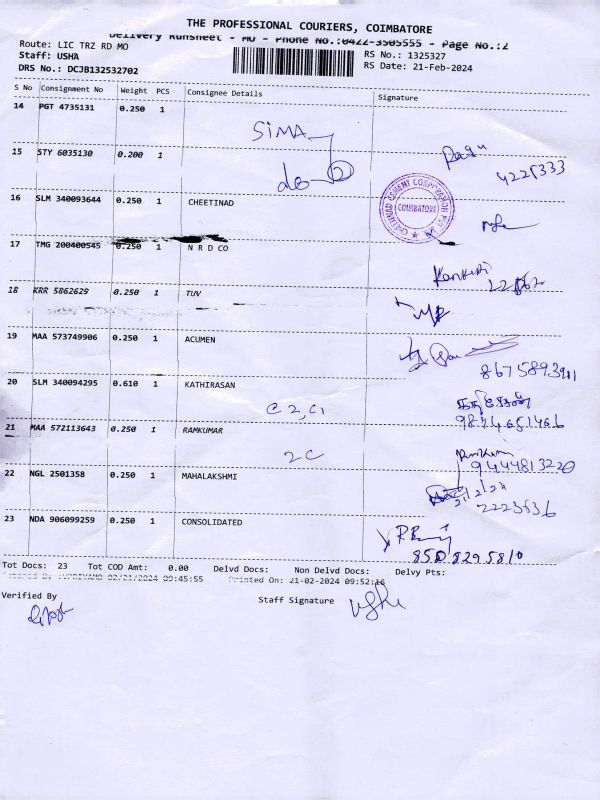 THE PROFESSIONAL COURIERS, COIMBATORE
Delivery Runsheet - MO - Phone No.:0422-3505555 - Page No.:2
Route: LIC TRZ RD MO RS No.: 1325327
Staff: USHA RS Date: 21-Feb-2024
DRS No.: DCJB132532702
S No Consignment No Weight PCS Consignee Details Signature
14 PGT 4735131 0.250 1
SIMA
15 STY 6035130 0.200 1
do
4225333
16 SLM 340093644 0.250 1 CHEETINAD
CHETTINAD CEMENT CORPORATION PVT LTD
COIMBATORE
17 TMG 200400545 0.250 1 N R D CO
18 KRR 5862629 0.250 1 TUV
19 MAA 573749906 0.250 1 ACUMEN
20 SLM 340094295 0.610 1 KATHIRASAN
C2,C1
21 MAA 572113643 0.250 1 RAMKUMAR
2C
9444813220
22 NGL 2501358 0.250 1 MAHALAKSHMI
21/2/24
2223636
23 NDA 906099259 0.250 1 CONSOLIDATED
8508295810
Tot Docs: 23 Tot COD Amt: 0.00 Delvd Docs: Non Delvd Docs: Delvy Pts:
02/21/2024 09:45:55 Printed On: 21-02-2024 09:52:16
Verified By Staff Signature